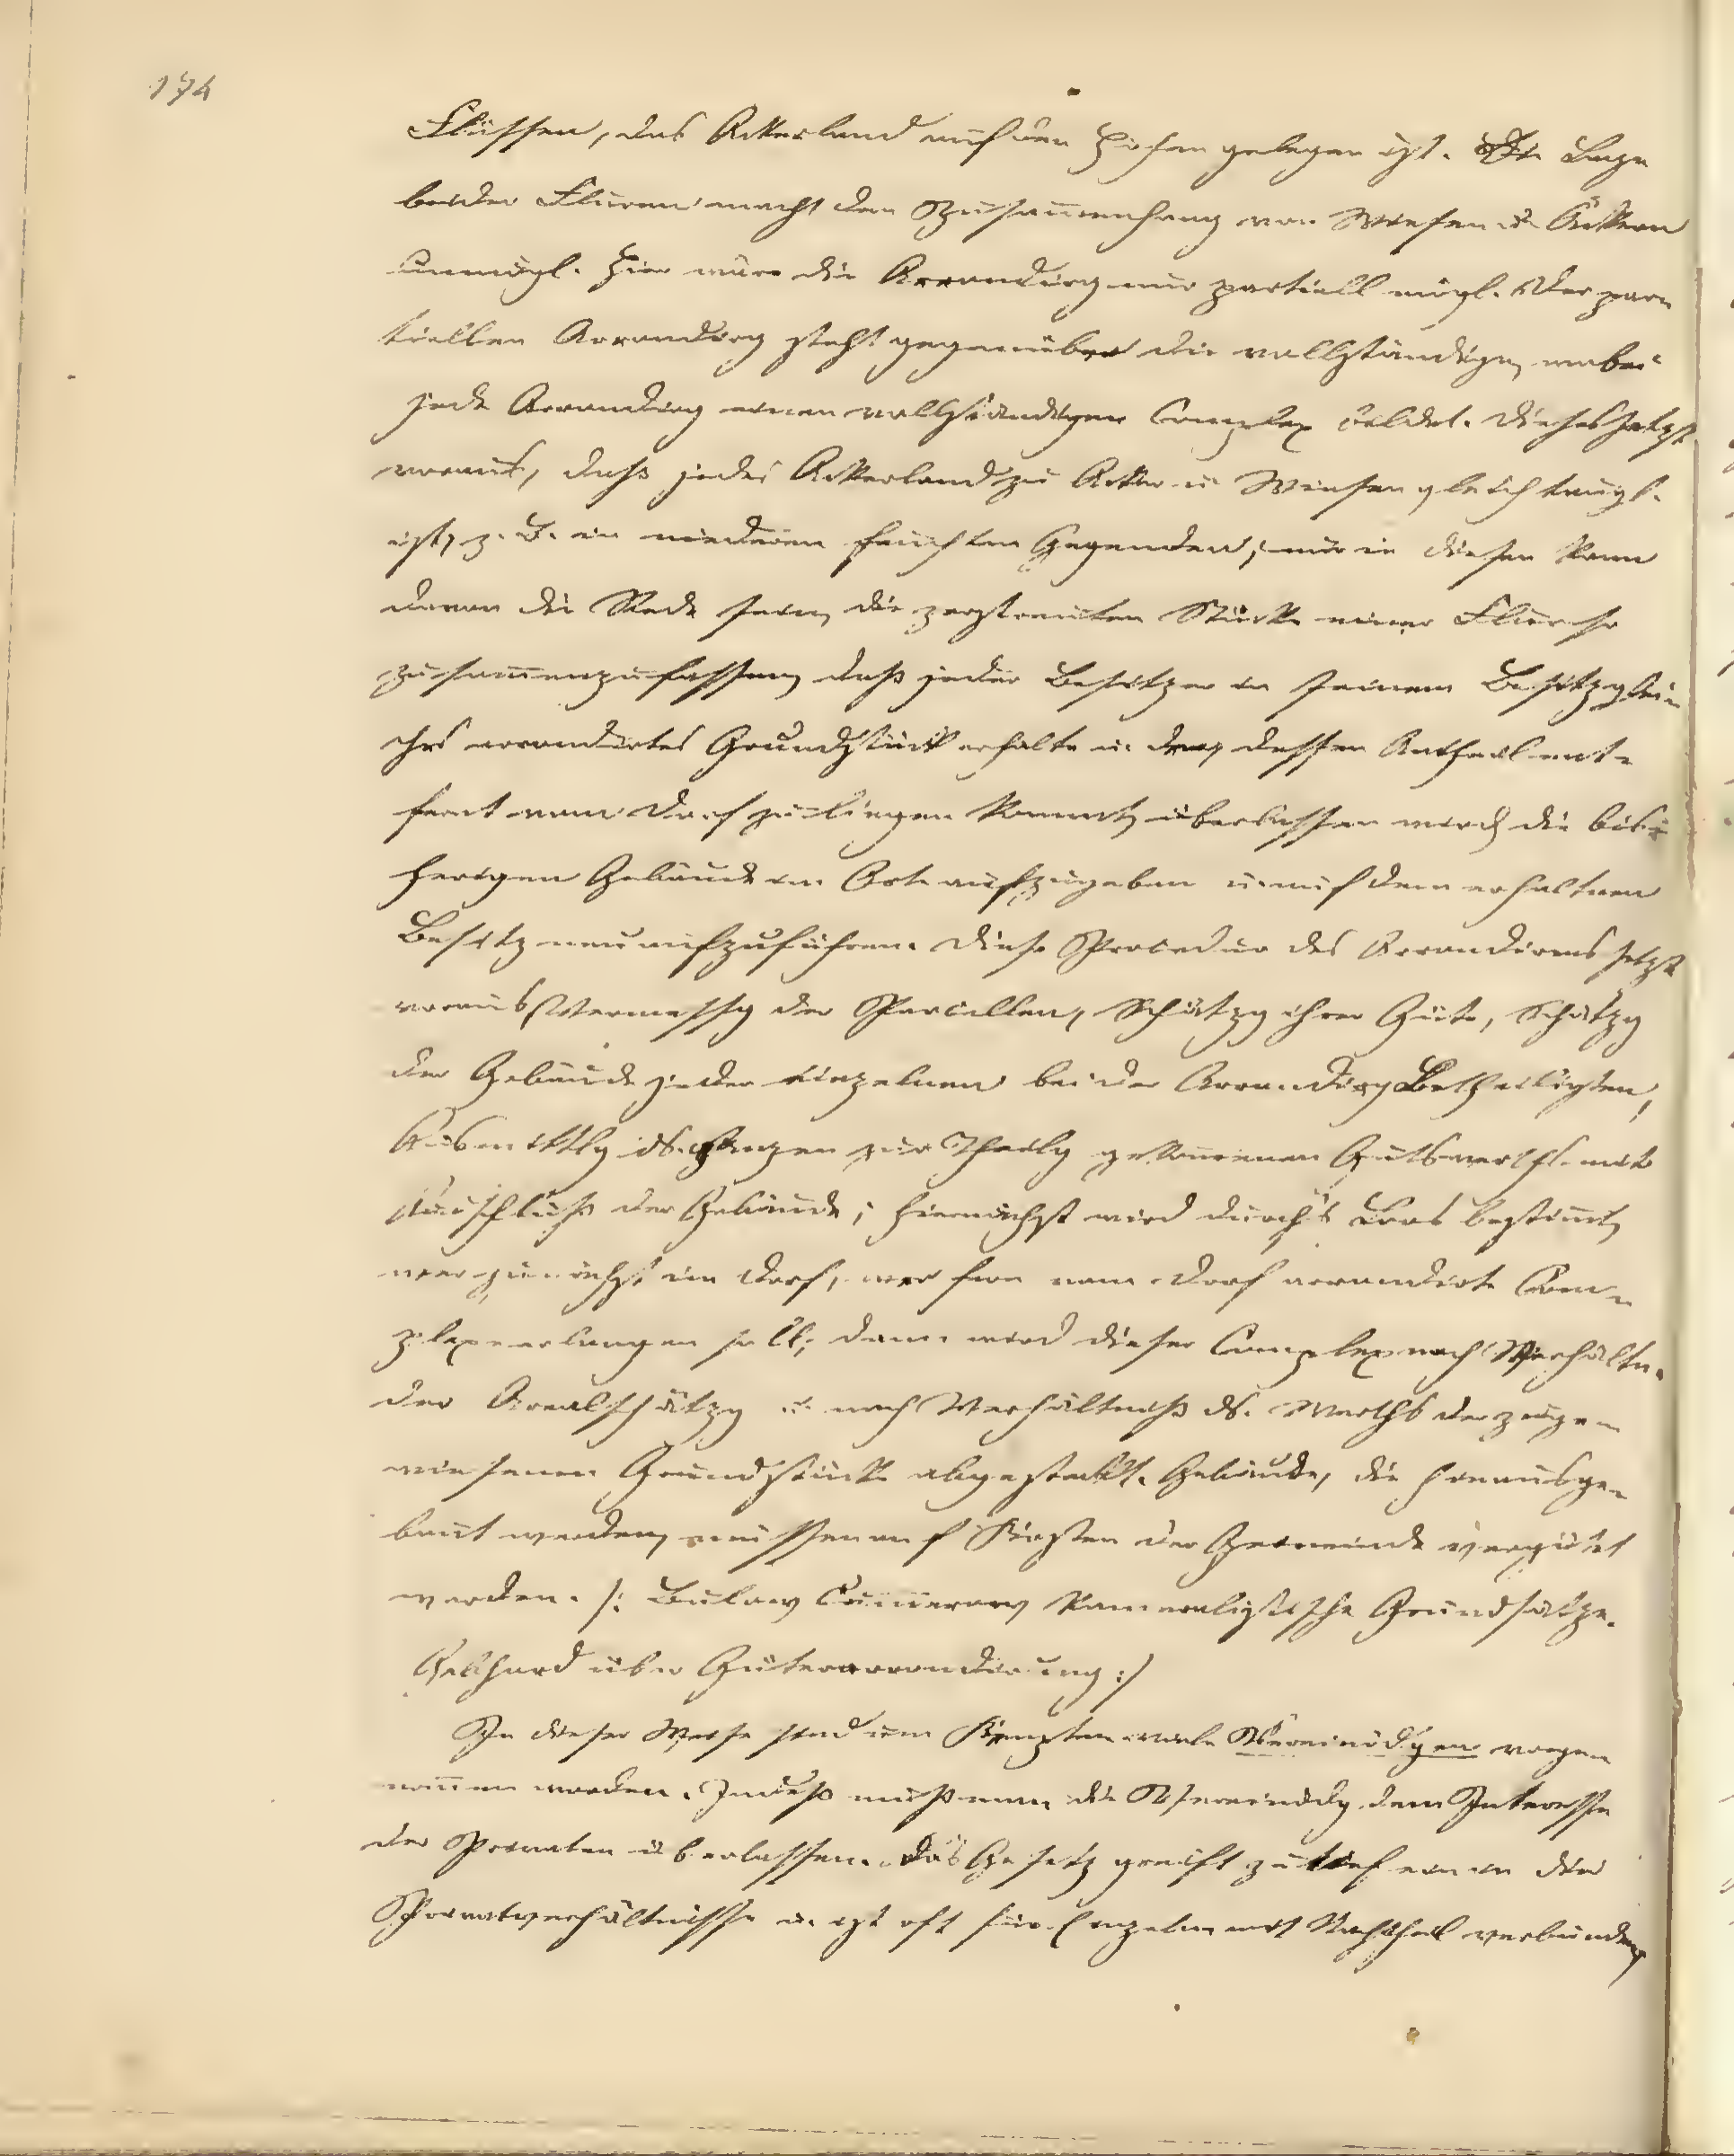 174
Flüssen, das Ackerland auf den Höhen gelegen ist. Die Lage
beider Fluren macht den Zusam̄enhang von Wiesen u. Äckern
unmögl. Hier wäre die Arrondirg nur partiell mögl. Der par-
tiellen Arrondirg steht gegenüber die vollständige, wobei
jede Arrondirg einen vollständigen Complex bildet. Dieses setzt
voraus, daß jedes Ackerland zu Acker u. Wiesen gleich taugl.
ist, z. B. in niederen feuchten Gegenden; nur in diesen kann
davon die Rede sein, die zerstreuten Stücke einer Flur so
zusam̄enzufassen, daß jeder Besitzer in seinem Besitz glei-
ches arrondirtes Grundstück erhalte u. dem, dessen Antheil ent-
fernt vom Dorf zu liegen kommt, überlassen wird, die bis-
herigen Gebäude im Orte aufzugeben u. auf dem erhaltnen
Besitz neu aufzuführen. Diese Procedur des Arrondirens setzt
voraus Vermessg der Parcellen, Schätzg ihrer Güte, Schätzg
der Gebäude jeder einzelnen bei der Arrondirg Betheiligten,
Ausmittlg ds. ganzen zur Theilg gekom̄enen Gutswerths mit
Ausschluß der Gebäude; hiernächst wird durch's Loos bestim̄t,
wer zunächst im Dorf, wer fern vom Dorf arrondirte Com-
plexe erlangen soll; dann wird dieser Complex nach Verhältn.
der Arealschätzg u. nach Verhältniß ds. Werths der zuge-
wiesenen Grundstücke abgesteckt. Gebäude, die hinausge-
baut werden, müssen auf Kosten der Gemeinde vergütet
werden. /: Bulow Cum̄erow Kameralistische Grundsätze.
Gebhard über Güterarrondirung :/
In dieser Weise sind um Kempten viele Vereinödgen vorgen-
nom̄en worden. Indeß muß man die Vereinödg dem Interesse
der Privaten überlassen. Das Gesetz greift zu tief ein in die
Privatverhältnisse u. ist oft für Einzelne mit Nachtheil verbunden,